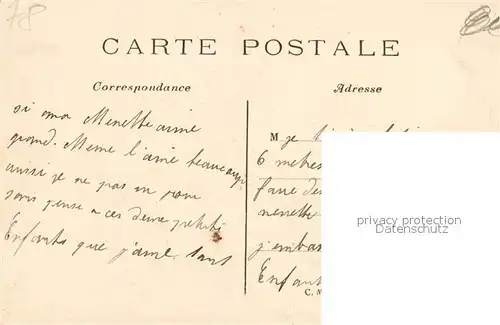 78
CARTE POSTALE
Correspondance
Adresse
si ma Menette aime
grand. Meme l'aime beaucoup
aussi je ne pas un jour
sans pense a ces deux petits
Enfants que j'aime tant
M je
6 metres
faue des
nenette
j'embas
Enfant
C. M
privacy protection
Datenschutz